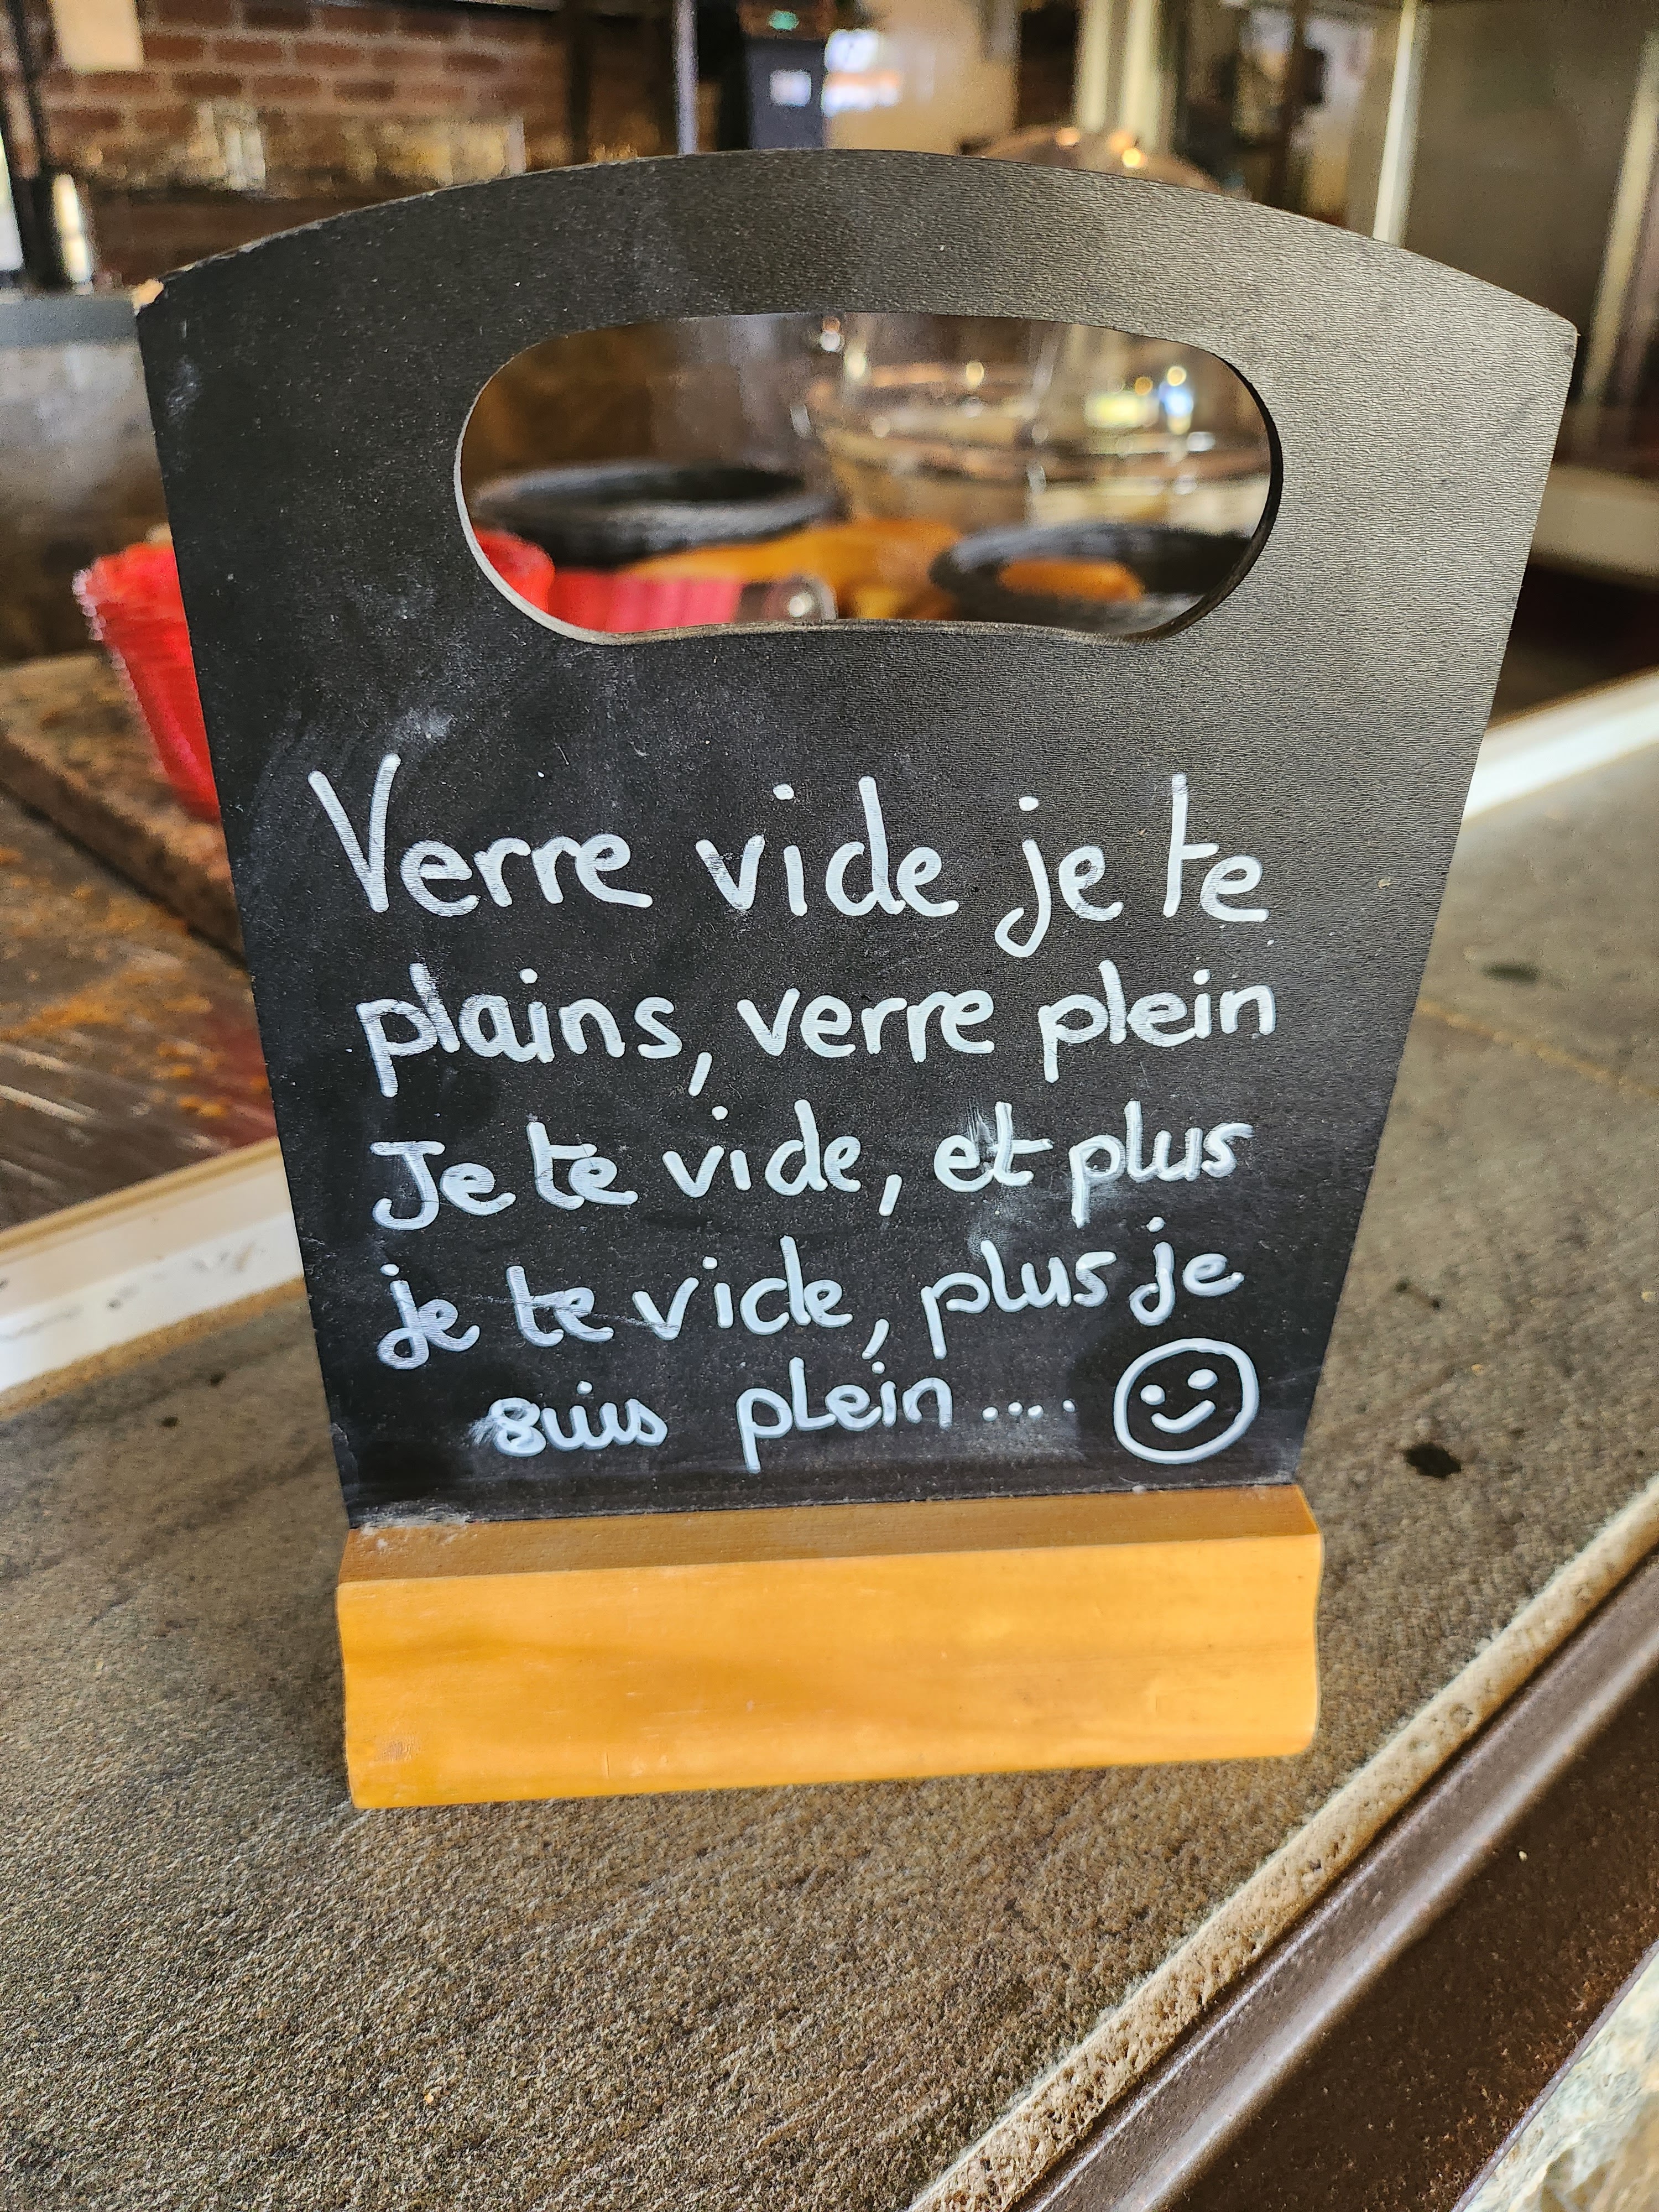 Verre vide je te
plains, verre plein
Je te vide, et plus
je te vide, plus je
suis plein ....